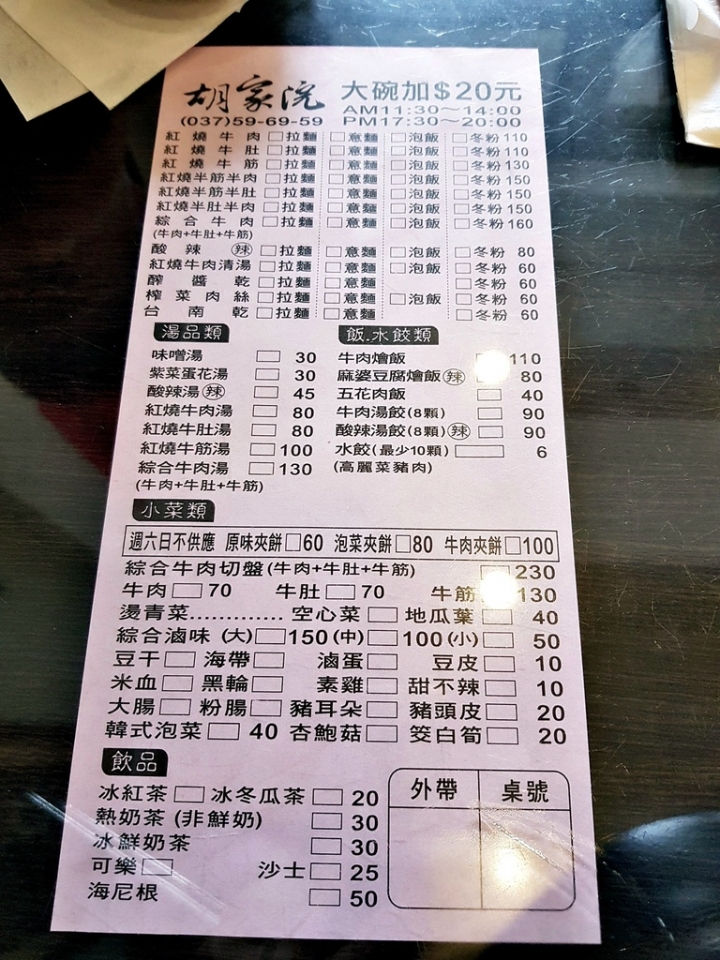 胡家浣 大碗加$20元
AM11:30～14:00
(037)59-69-59 PM17:30～20:00
紅燒牛肉□拉麵 □意麵 □泡飯 □冬粉 110
紅燒牛肚□拉麵 □意麵 □泡飯 □冬粉 110
紅燒牛筋□拉麵 □意麵 □泡飯 □冬粉 130
紅燒半筋半肉□拉麵 □意麵 □泡飯 □冬粉 150
紅燒半筋半肚□拉麵 □意麵 □泡飯 □冬粉 150
紅燒半肚半肉□拉麵 □意麵 □泡飯 □冬粉 150
綜合牛肉□拉麵 □意麵 □泡飯 □冬粉 160
(牛肉+牛肚+牛筋)
酸辣 辣 □拉麵 □意麵 □泡飯 □冬粉 80
紅燒牛肉清湯□拉麵 □意麵 □泡飯 □冬粉 60
醡醬乾□拉麵 □意麵 □冬粉 60
榨菜肉絲□拉麵 □意麵 □泡飯 □冬粉 60
台南乾□拉麵 □意麵 □冬粉 60
湯品類
味噌湯 □ 30
紫菜蛋花湯 □ 30
酸辣湯 辣 □ 45
紅燒牛肉湯 □ 80
紅燒牛肚湯 □ 80
紅燒牛筋湯 □ 100
綜合牛肉湯 □ 130
(牛肉+牛肚+牛筋)
飯.水餃類
牛肉燴飯 □ 110
麻婆豆腐燴飯 辣 □ 80
五花肉飯 □ 40
牛肉湯餃(8顆) □ 90
酸辣湯餃(8顆) 辣 □ 90
水餃(最少10顆) □ 6
(高麗菜豬肉)
小菜類
週六日不供應 原味夾餅□60 泡菜夾餅□80 牛肉夾餅□100
綜合牛肉切盤(牛肉+牛肚+牛筋) □230
牛肉□70 牛肚□70 牛筋□130
燙青菜............. 空心菜□ 地瓜葉□ 40
綜合滷味 (大)□150 (中)□100 (小)□ 50
豆干□ 海帶□ 滷蛋□ 豆皮□ 10
米血□ 黑輪□ 素雞□ 甜不辣□ 10
大腸□ 粉腸□ 豬耳朵□ 豬頭皮□ 20
韓式泡菜□ 40 杏鮑菇□ 筊白筍□ 20
飲品
冰紅茶□ 冰冬瓜茶□ 20
熱奶茶(非鮮奶) □ 30
冰鮮奶茶 □ 30
可樂□ 沙士□ 25
海尼根 □ 50
外帶 桌號